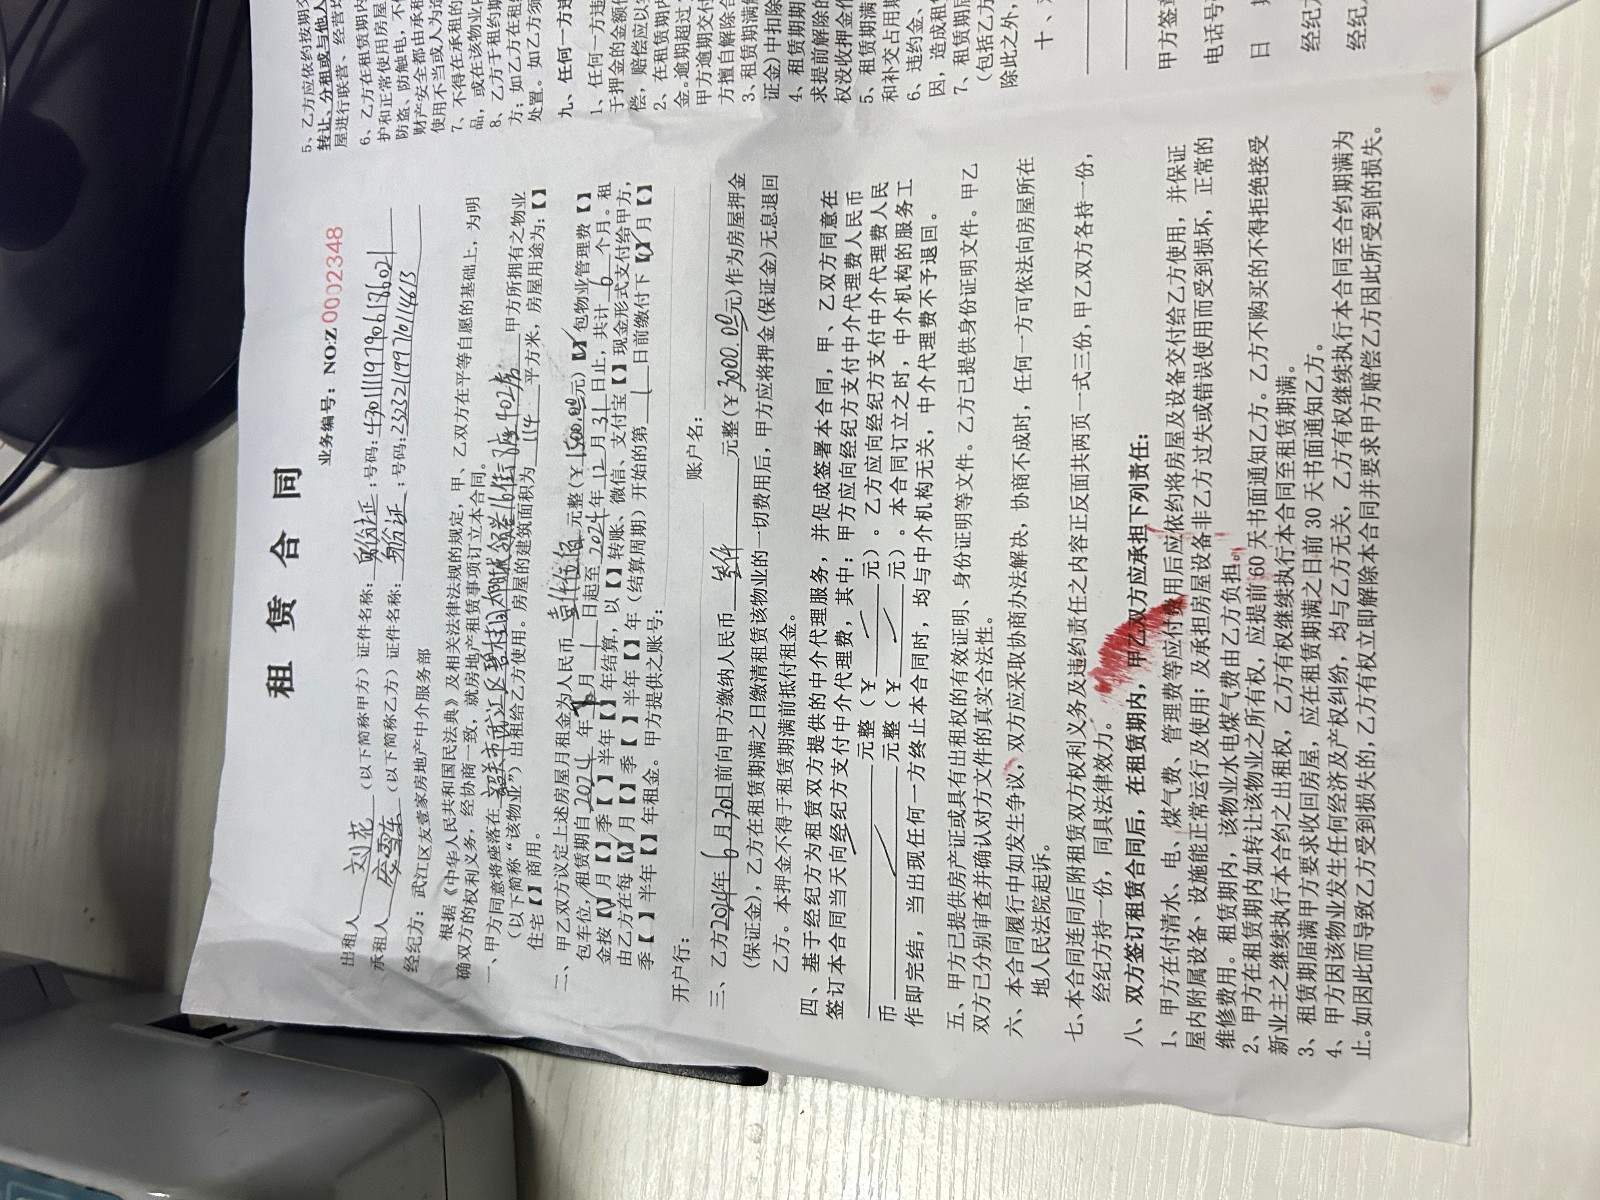 租赁合同
业务编号：NO:Z 0002348
出租人 刘花 （以下简称甲方）证件名称：身份证；号码：
承租人 （以下简称乙方）证件名称：身份证；号码：
经纪方：武江区友壹家房地产中介服务部
根据《中华人民共和国民法典》及相关法律法规的规定，甲、乙双方在平等自愿的基础上，为明
确双方的权利义务，经协商一致，就房地产租赁事项订立本合同。
一、甲方同意将座落在 韶关市武江区碧桂 甲方所拥有之物业
（以下简称“该物业”）出租给乙方使用。房屋的建筑面积为 114 平方米，房屋用途为：【 】
住宅【 】商用。
二、甲乙双方议定上述房屋月租金为人民币 壹仟伍佰 元整（￥1500.00元）【✓】包物业管理费【 】
包车位，租赁期自 2024 年 月 1 日起至 2024 年 12 月 31 日止，共计 6 个月。租
金按【✓】月【 】季【 】半年【 】年结算，以【 】转账、微信、支付宝【 】现金形式支付给甲方，
由乙方在每【✓】月【 】季【 】半年【 】年（结算周期）开始的第 1 日前缴付下【✓】月【 】
季【 】半年【 】年租金。甲方提供之账号：
开户行： 账户名：
三、乙方2024年6月30日前向甲方缴纳人民币 叁仟 元整（￥3000.00元）作为房屋押金
（保证金），乙方在租赁期满之日缴清租赁该物业的一切费用后，甲方应将押金（保证金）无息退回
乙方。本押金不得于租赁期满前抵付租金。
四、基于经纪方为租赁双方提供的中介代理服务，并促成签署本合同，甲、乙双方同意在
签订本合同当天向经纪方支付中介代理费，其中：甲方应向经纪方支付中介代理费人民币
元整（￥ 元）。乙方应向经纪方支付中介代理费人民
币 元整（￥ 元）。本合同订立之时，中介机构的服务工
作即完结，当出现任何一方终止本合同时，均与中介机构无关，中介代理费不予退回。
五、甲方已提供房产证或具有出租权的有效证明、身份证明等文件。乙方已提供身份证明文件。甲乙
双方已分别审查并确认对方文件的真实合法性。
六、本合同履行中如发生争议，双方应采取协商办法解决，协商不成时，任何一方可依法向房屋所在
地人民法院起诉。
七、本合同连同后附租赁双方权利义务及违约责任之内容正反面共两页一式三份，甲乙双方各持一份，
经纪方持一份，同具法律效力。
八、双方签订租赁合同后，在租赁期内，甲乙双方应承担下列责任：
1、甲方在付清水、电、煤气费、管理费等应付费用后应依约将房屋及设备交付给乙方使用，并保证
屋内附属设备、设施能正常运行及使用；及承担房屋设备非乙方过失或错误使用而受到损坏，正常的
维修费用。租赁期内，该物业水电煤气费由乙方负担。
2、甲方在租赁期内如转让该物业之所有权，应提前60天书面通知乙方。乙方不购买的不得拒绝接受
新业主之继续执行本合约之出租权，乙方有权继续执行本合同至租赁期满。
3、租赁期届满甲方要求收回房屋，应在租赁期满之日前30天书面通知乙方。
4、甲方因该物业发生任何经济及产权纠纷，均与乙方无关，乙方有权继续执行本合同至合约期满为
止。如因此而导致乙方受到损失的，乙方有权立即解除本合同并要求甲方赔偿乙方因此所受到的损失。
5、乙方应依约按期
转让、分租或与他人
屋进行联营、经营
6、乙方在租赁期内
护和正常使用房屋
防盗、防触电，不
财产安全都由承租
使用不当或人为造
7、不得在承租的
品，或在该物业
8、乙方于租约期
方；如乙方在租
处置。如乙方须
九、任何一方违
1、任何一方违
于押金的金额
偿，赔偿应以
2、在租赁期内
金。逾期超过
甲方逾期交付
方擅自解除合
3、租赁期满
证金）中扣除
4、租赁期期
求提前解除的
权没收押金作
5、租赁期满
和补交占用期
6、违约金、
因，造成租
7、租赁期后
（包括乙方
除此之外，
十、
甲方签章
电话号
日 期
经纪方
经纪人